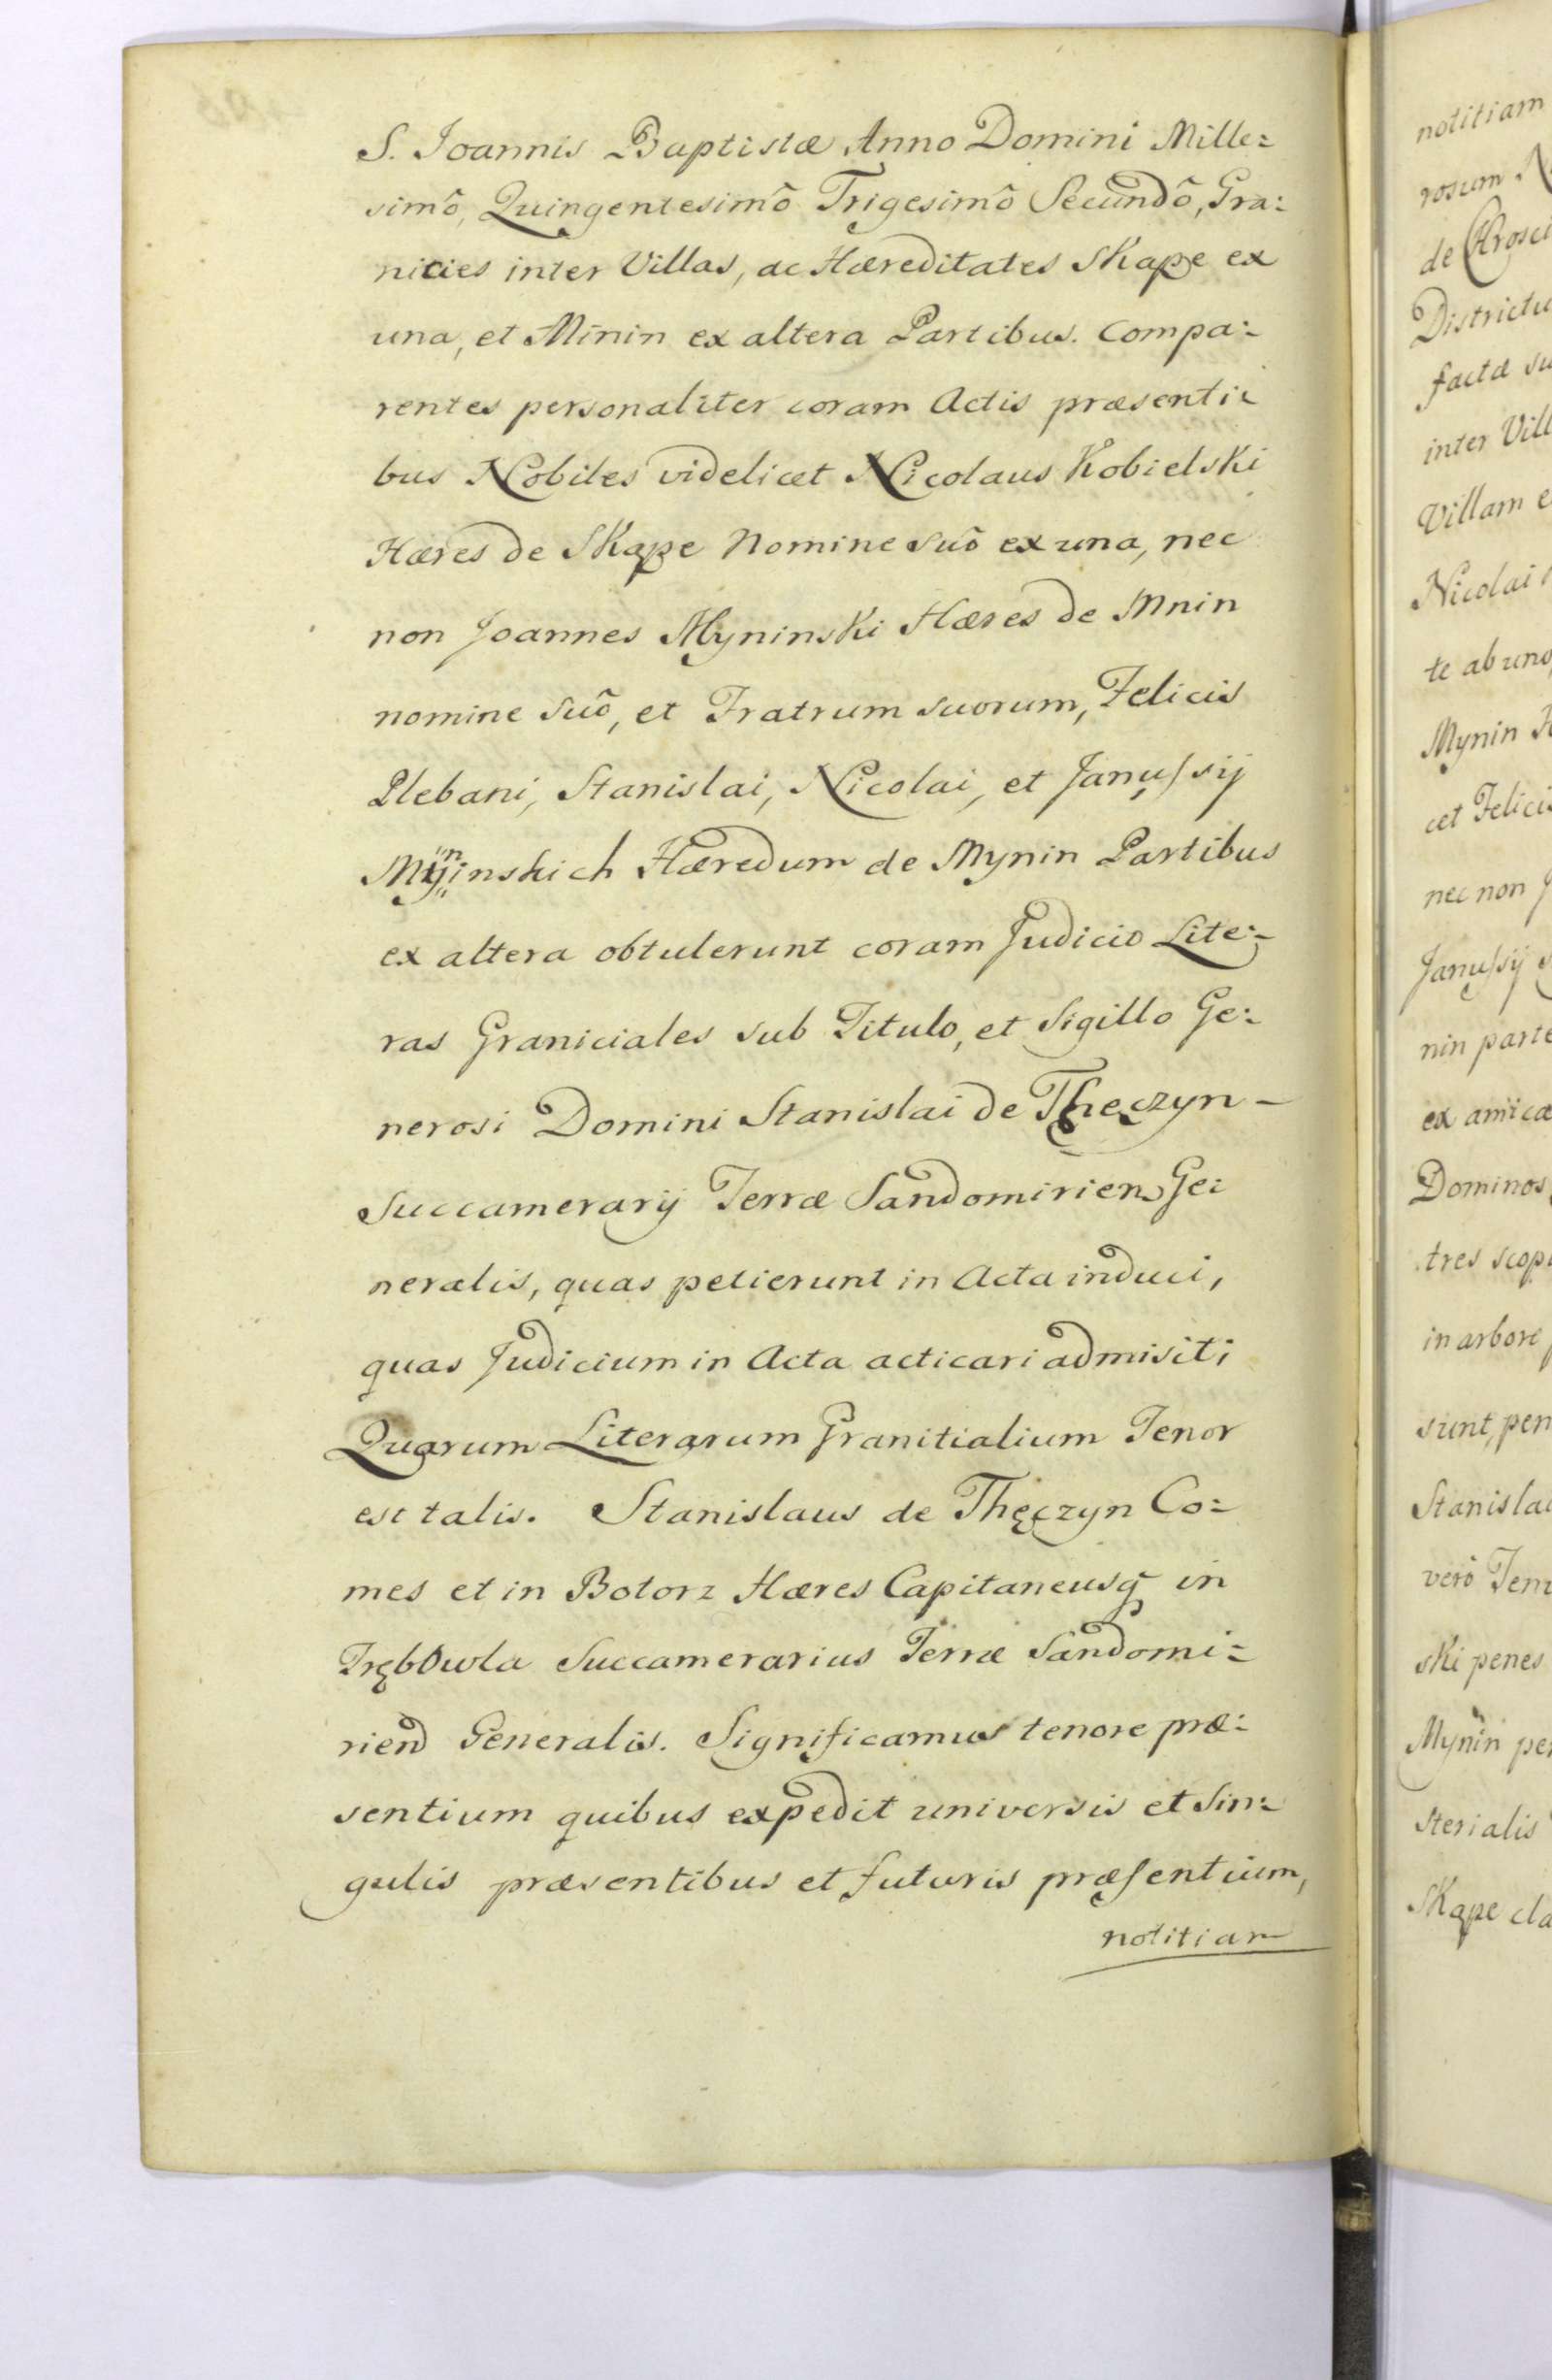 S. Joannis Baptistæ Anno Domini Mille:
simô, Quingentesimô Trigesimô Secundô, Gra:
nicies inter Villas, ac Hæreditates Skąpe ex
una, et Mīnin ex altera Partibus. Compa:
rentes personaliter coram Actis præsenti:
bus Nobiles videlicet Nicolaus Kobielski
Hæres de Skąpe Nomine suô ex una, nec
non Joannes Myninski Hæres de Mnin
nomine suô, et Fratrum suorum, Felicis
Plebani, Stanislai, Nicolai, et Januſsij
Mÿninskich Hæredum de Mynin Partibus
ex altera obtulerunt coram Judicio Lite:
ras Graniciales sub Titulo, et Sigillo Ge:
nerosi Domini Stanislai de Thęczyn
Succamerarij Terræ Sandomirien Ge:
neralis, quas petierunt in Acta induci,
quas Judicium in Acta acticari admisit;
Quarum Literarum Granitialium Tenor
est talis. Stanislaus de Thęczyn Co:
mes et in Botorz Hæres Capitaneusq in
Trębowla Succamerarius Terræ Sandomi:
rien Generalis. Significamus tenore præ:
sentium quibus expedit universis et sin:
gulis præsentibus et futuris præſentium,
notitiam
notitiam
rosum
de
Districtu
factæ su
inter Vill
Villam e
Nicolai
te ab uno
Mynin
cet Felicis
nec non J
Januſsij
nin parte
ex amica
Dominos
tres scop
in arbore
sunt, pen
Stanislai
verô
ski penes
Mynin pe
sterialis
Skąpe cla